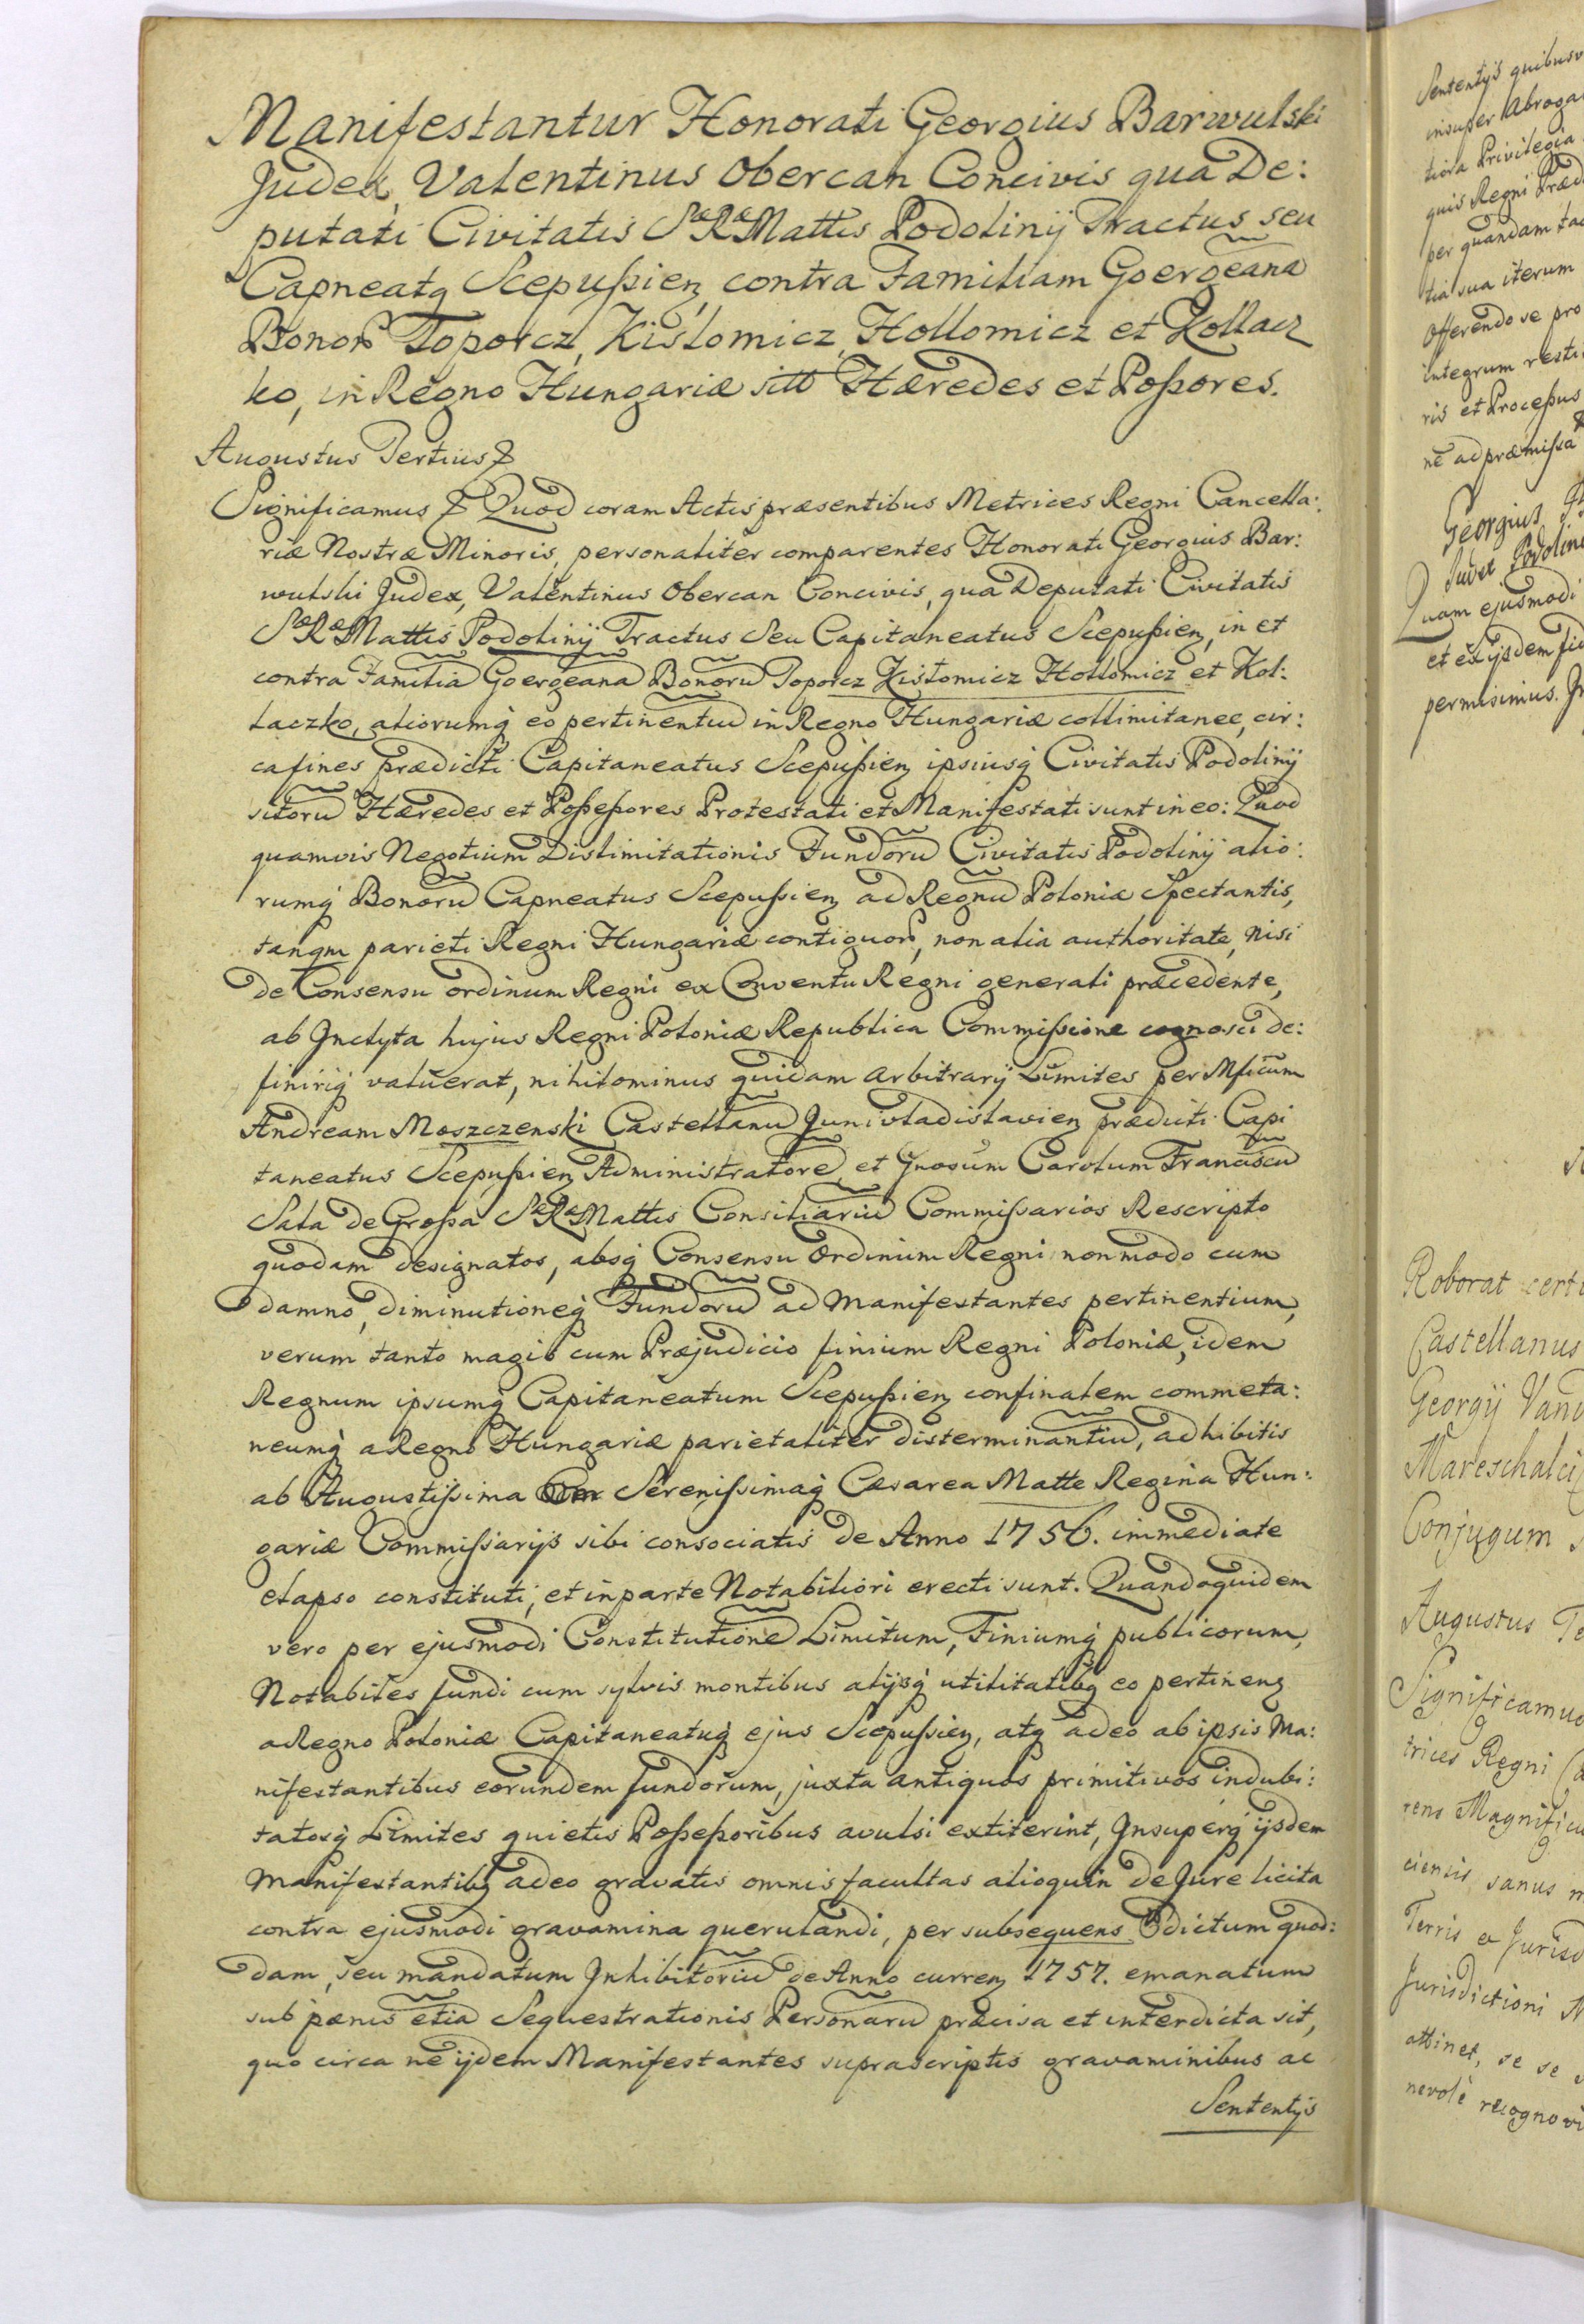 Manifestantur Honorati Georgius Barwulski
Judex, Valentinus Obercan Concivis qua De:
putati Civitatis SæRæMattis Podolinij Tractus seu
Capneatq Scepußien, contra Familiam Goergeana
Bonor Toporcz, Kislomicz, Hollomicz et Kollacz
ko, in Regno Hungariæ sitt Hæredes et Poßores.
Augustus Tertius
Significamus Quod coram Actis præsentibus Metrices Regni Cancella:
riæ Nostræ Minoris, personaliter comparentes Honorati Georgius Bar:
wulski Judex, Valentinus Obercan Concivis, qua Deputati Civitatis
SæRæMattis Podolinij Tractus Seu Capitaneatus Scepußien, in et
contra Familia Goergeana Bonoru Toporcz Kislomicz Hollomicz et Kol:
laczko, aliorumq eo pertinentiu in Regno Hungariæ collimitanee, cir:
ca fines prædicti Capitaneatus Scepußien ipsiusq Civitatis Podolinij
sitoru Hæredes et Poßeßores Protestati et Manifestati sunt in eo: Quod
quamvis Negotium Dislimitationis Fundoru Civitatis Podolinij alio:
rumq Bonoru Capneatus Scepußien ad Regnu Poloniæ Spectantis,
tanqm parieti Regni Hungariæ contiguor, non alia authoritate, nisi
de Consensu ordinum Regni ex Conventu Regni generali præcedente,
ab Inclyta hujus Regni Poloniæ Republica Commißione cognosci de:
finiriq valuerat, nihilominus quidam Arbitrarij Limites per Mficum
Andream Moszczenski Castellanu Junivladislavien prædicti Capi
taneatus Scepußien Administratore, et Gnosum Carolum Franciscu
Sala de Großa SæRæMattis Consiliariu Commißarios Rescripto
quodam designatos, absq Consensu Ordinum Regni non modo cum
damno, diminutioneq Fundoru ad Manifestantes pertinentium,
verum tanto magis cum Præjudicio finium Regni Poloniæ, idem
Regnum ipsumq Capitaneatum Scepußien confinalem commeta:
neumq a Regno Hungariæ parietaliter disterminantiu, adhibitis
ab Augustißima Serenißimaq Cæsarea Matte Regina Hun:
gariæ Commißarijs sibi consociatis de Anno 1756. immediate
elapso constituti, et in parte Notabiliori erecti sunt. Quandoquidem
vero per ejusmodi Constitutione Limitum, Finiumq publicorum,
Notabiles fundi cum sylvis montibus alijsq utilitatibq eo pertinen
a Regno Poloniæ Capitaneatuq ejus Scepußien, atq adeo ab ipsis Ma:
nifestantibus eorundem fundorum, juxta antiquos primitivos indubi:
tatosq Limites quietis Poßeßoribus avulsi extiterint, Insuperq ijsdem
Manifestantibq adeo gravatis omnis facultas alioquin de Jure licita
contra ejusmodi gravamina querulandi, per subsequens Edictum quod:
dam, seu mandatum Inhibitoriu de Anno curren 1757. emanatum
sub pænis etia Sequestrationis Personaru præcisa et interdicta sit,
quo circa ne ijdem Manifestantes suprascriptis gravaminibus ac
Sententijs
Sententijs quibusv
insuper Abroga
tiora Privilegia
quis Regni Præd
per quandam tac
tia sua iterum
Offerendo se pro
integrum resti
ris et Proceßus
ne ad præmißa
Georgius
Judex Podolin
Quam ejusmodi
et ex ijsdem fid
permisimus. In
Roborat certi
Castellanus
Georgij Vand
Mareschalci
Conjugum
Augustus Te
Significamus
trices Regni Ca
rens Magnificu
ciensis sanus m
Terris et Jurisd
Jurisdictioni N
attinet, se se
nevole recognovi